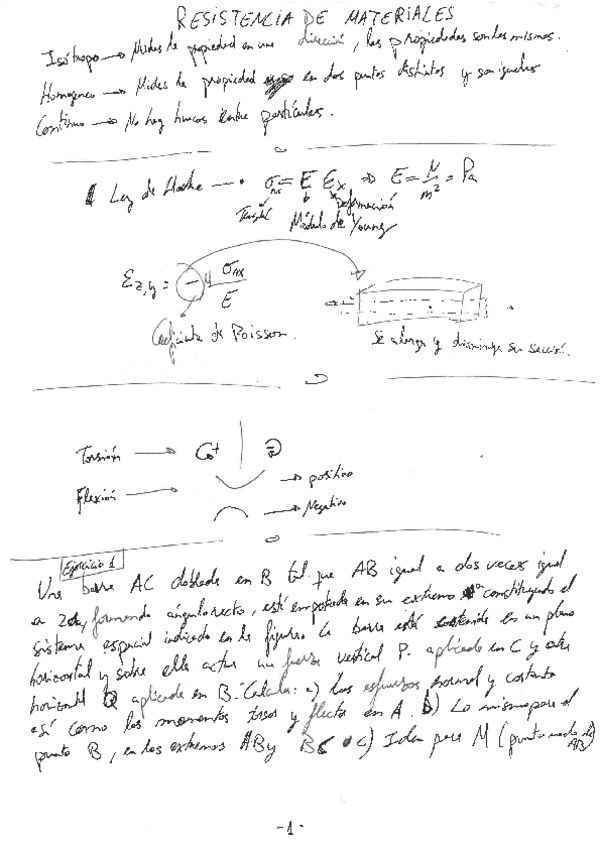 RESISTENCIA DE MATERIALES
Isótropo → Mides la propiedad en una dirección, las propiedades son las mismas.
Homogeneo → Mides la propiedad en dos puntos distintos y son iguales
Continuo → No hay huecos entre partículas.
Ley de Hooke → σnx = E Ex ⇒ E = N/m² = Pa
Tensión
Deformación
Módulo de Young
εz,y = - μ σnx / E
Coeficiente de Poisson.
Se alarga y disminuye su sección.
Torsión →
Flexión → → positivo
→ Negativo
Ejercicio 1
Una barra AC doblada en B tal que AB igual a dos veces igual
a 2a, formando ángulo recto, está empotrada en su extremo constituyendo el
sistema espacial indicado en la figura. La barra está contenida en un plano
horizontal y sobre ella actúa una fuerza vertical P. aplicada en C y otra
horizontal Q aplicada en B. Calcula: a) Los esfuerzos normal y cortante
así como los momentos torsor y flector en A. b) Lo mismo para el
punto B, en los extremos AB y BC c) Idem para M (punto medio de AB)
-1-